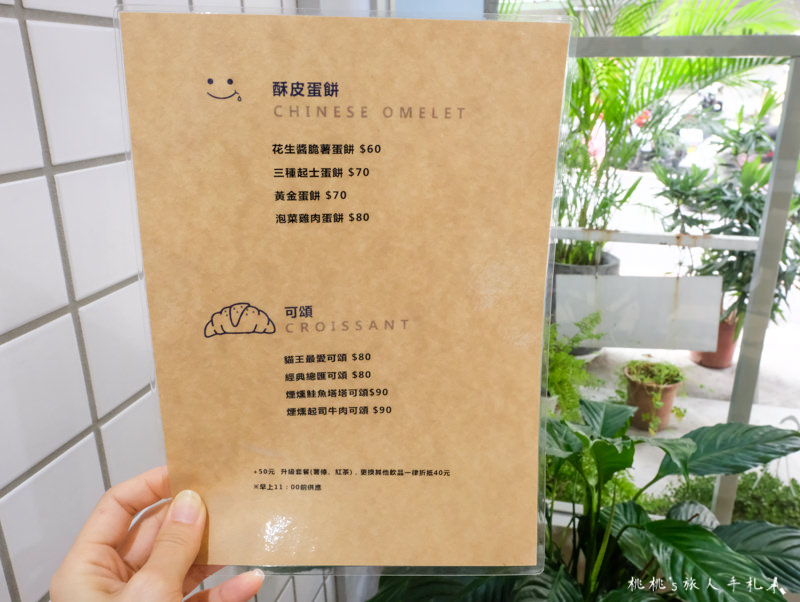 酥皮蛋餅
CHINESE OMELET
花生醬脆薯蛋餅 $60
三種起士蛋餅 $70
黃金蛋餅 $70
泡菜雞肉蛋餅 $80
可頌
CROISSANT
貓王最愛可頌 $80
經典總匯可頌 $80
煙燻鮭魚塔塔可頌$90
煙燻起司牛肉可頌 $90
+50元 升級套餐(薯條、紅茶)，更換其他飲品一律折抵40元
※早上11：00前供應
桃桃's旅人手札